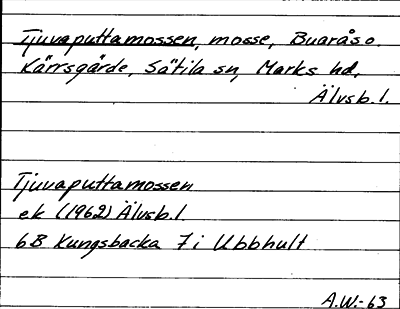 Tjuvaputtamossen, mosse, Buarås o.
Kärrsgärde, Sätila sn, Marks hd,
Älvsb. l.
Tjuvaputtamossen
ek (1962) Älvsb. l
6B Kungsbacka 7 i Ubbhult
A.W.-63